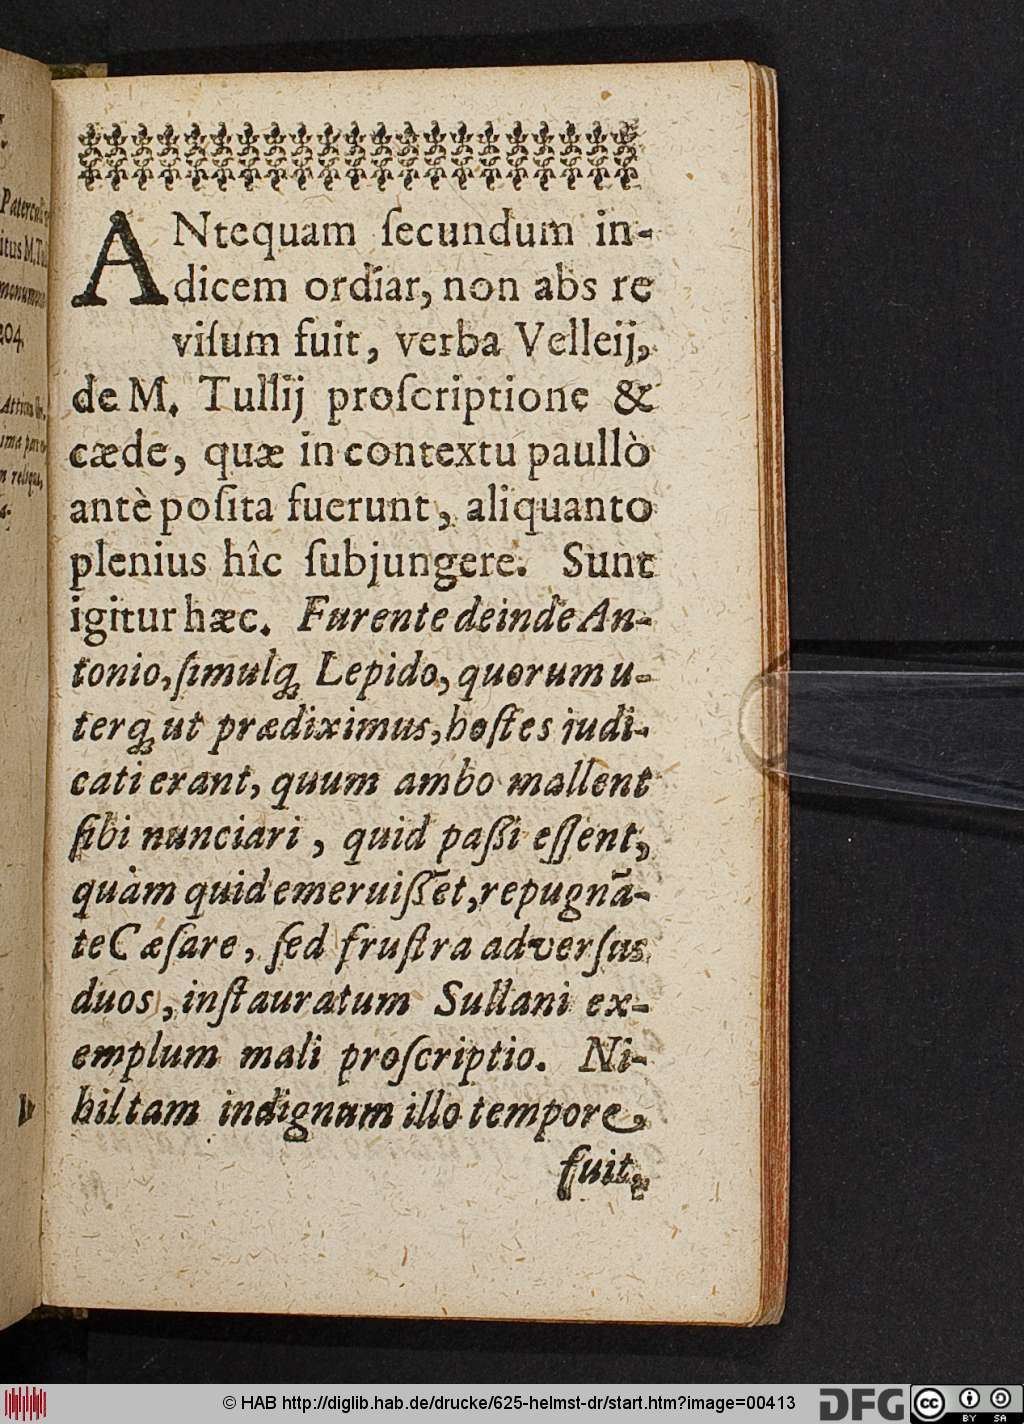 ANtequam ſecundum in-
dicem ordiar, non abs re
viſum fuit, verba Velleij,
de M. Tullij proſcriptione &
cæde, quæ in contextu paullò
antè poſita fuerunt, aliquanto
plenius hîc ſubjungere. Sunt
igitur hæc. Furente deinde An-
tonio, ſimulq́; Lepido, quorum u-
terq́; ut prædiximus, hoſtes judi-
cati erant, quum ambo mallent
ſibi nunciari, quid paſſi eſſent,
quàm quid emeruiſſēt, repugnā-
te Cæſare, ſed fruſtra adverſus
duos, inſtauratum Sullani ex-
emplum mali proſcriptio. Ni-
hil tam indignum illo tempore
fuit,
Patercu
itus M. Tul
204.
© HAB http://diglib.hab.de/drucke/625-helmst-dr/start.htm?image=00413
DFG
cc
BY SA